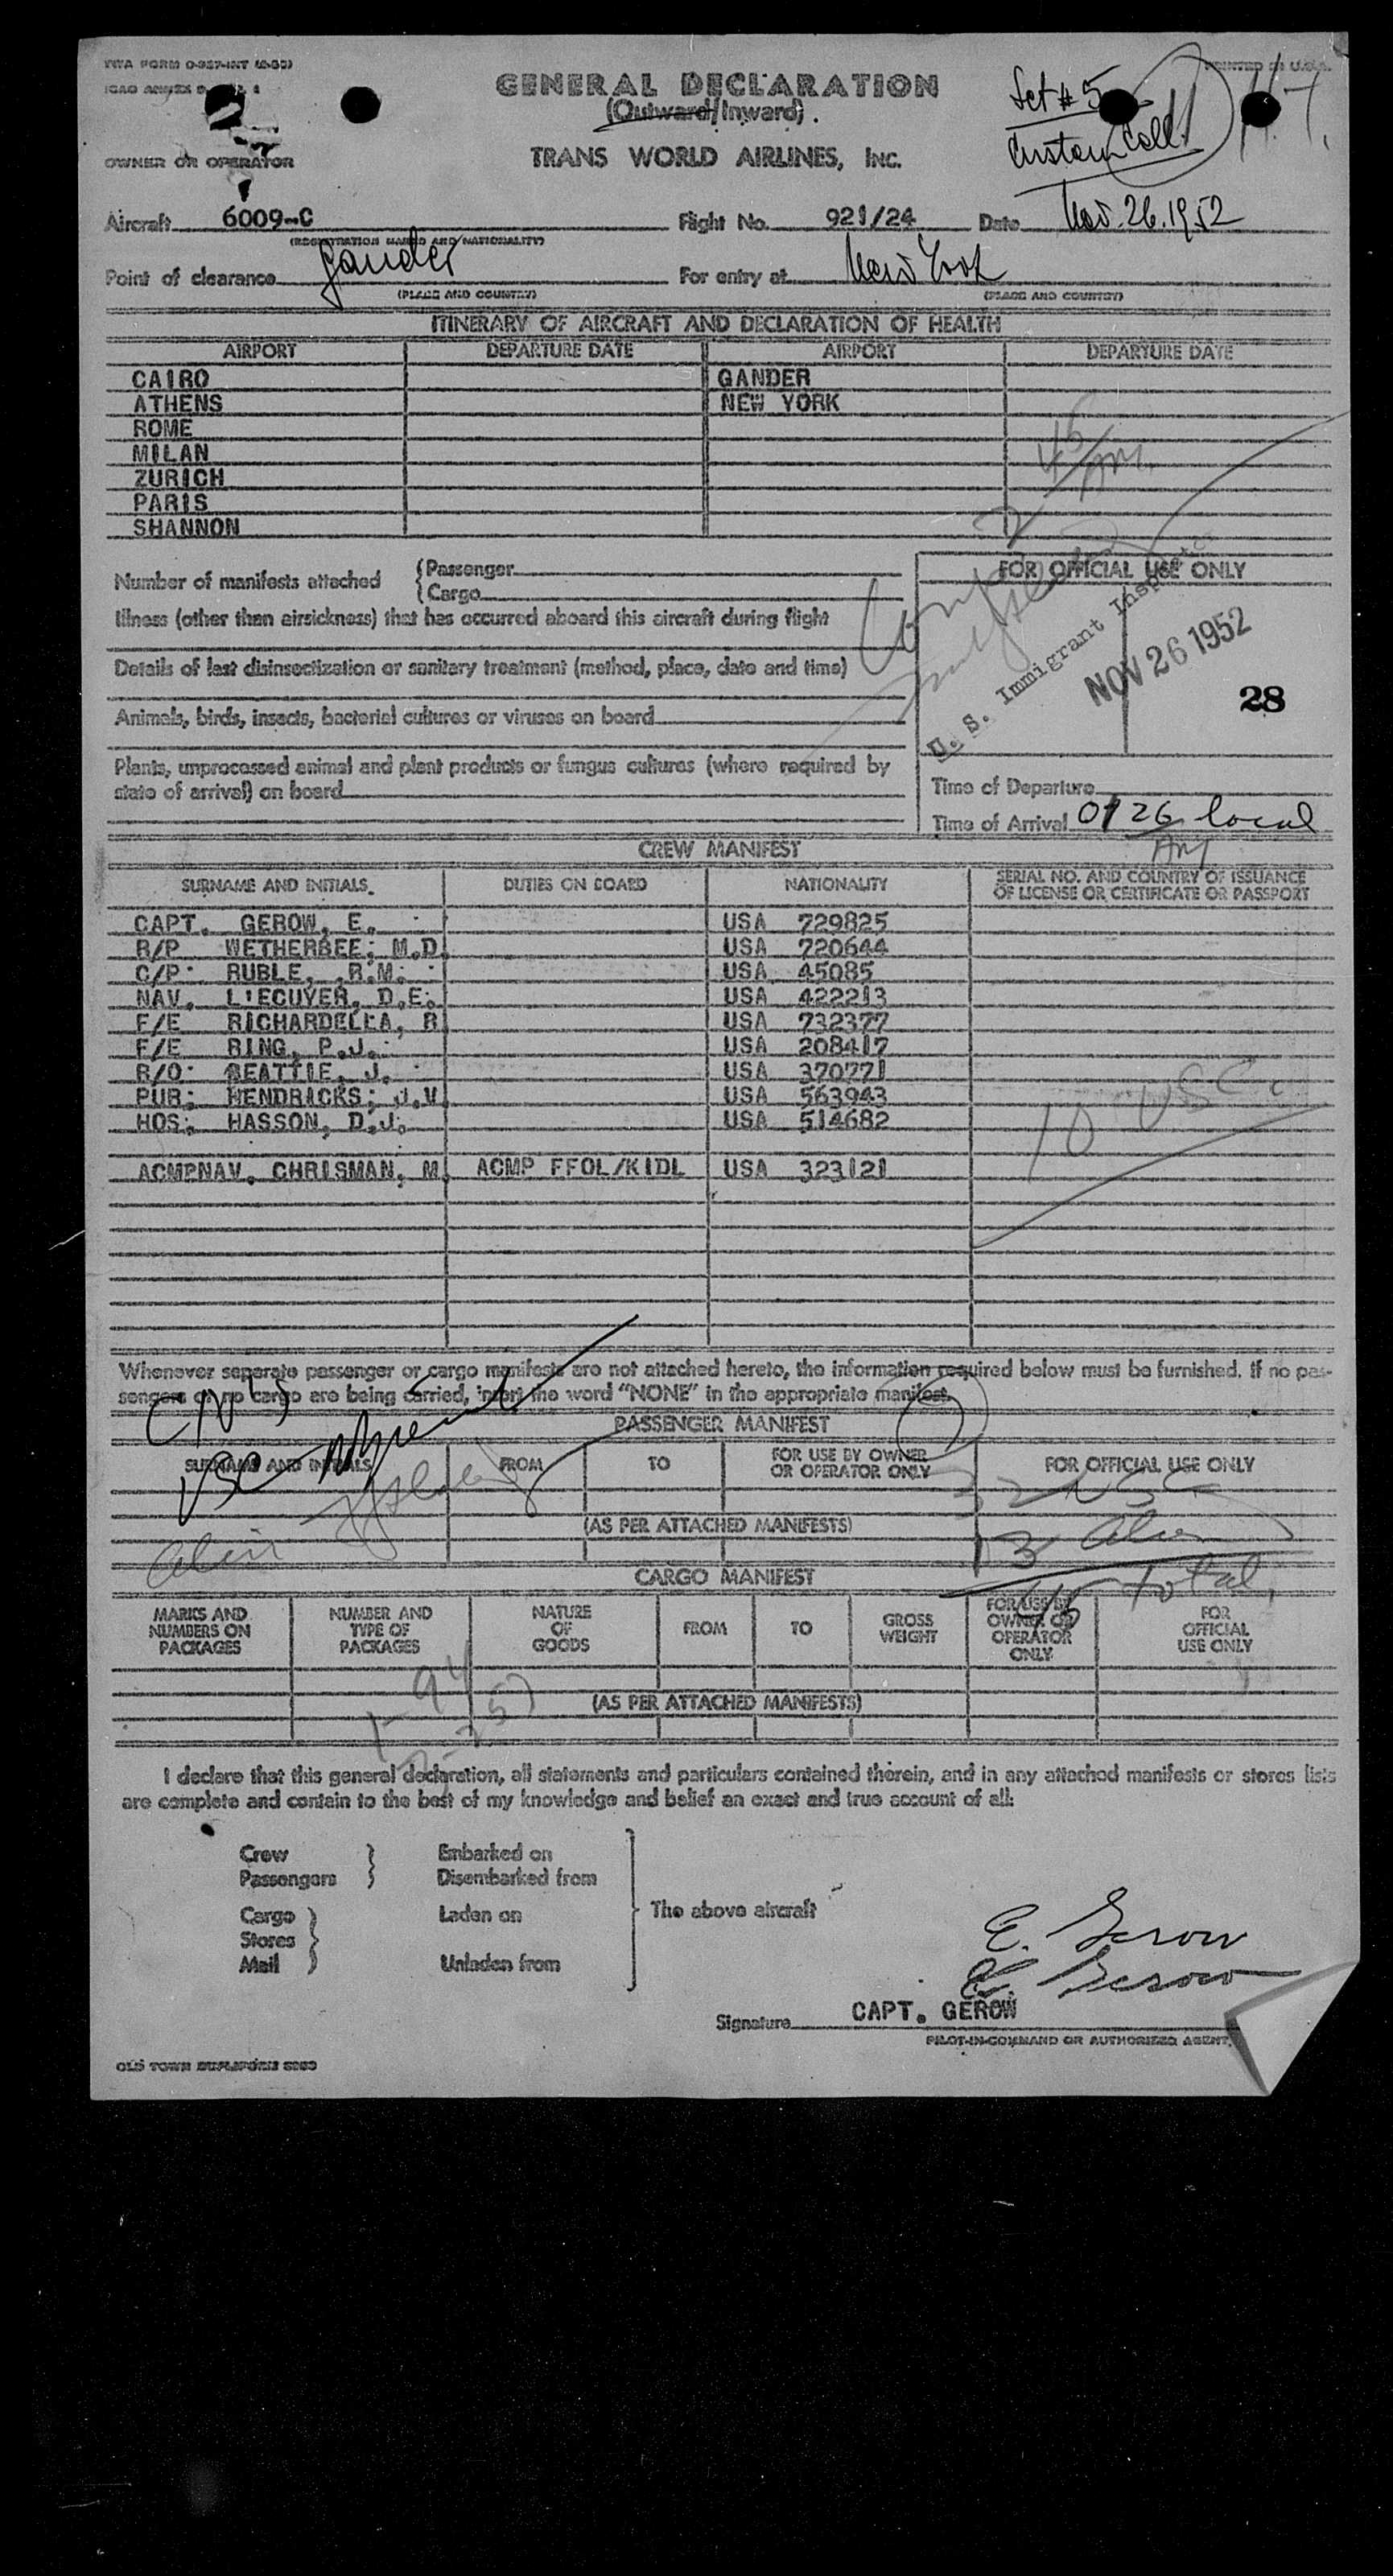 TWA FORM O-937-INT
PRINTED IN U.S.A.
ICAO ANNEX 9
GENERAL DECLARATION
(Outward/Inward).
Set # 5
Custom Coll.
OWNER OR OPERATOR
TRANS WORLD AIRLINES, INC.
Aircraft 6009-C Flight No. 921/24 Date Nov. 26. 1952
(REGISTRATION MARKS AND NATIONALITY)
Point of clearance Gander For entry at New York
(PLACE AND COUNTRY) (PLACE AND COUNTRY)
ITINERARY OF AIRCRAFT AND DECLARATION OF HEALTH
AIRPORT DEPARTURE DATE AIRPORT DEPARTURE DATE
CAIRO GANDER
ATHENS NEW YORK
ROME
MILAN
ZURICH
PARIS
SHANNON
Number of manifests attached { Passenger
Cargo
FOR OFFICIAL USE ONLY
Illness (other than airsickness) that has occurred aboard this aircraft during flight
U. S. Immigrant Inspector
NOV 26 1952
Details of last disinsectization or sanitary treatment (method, place, date and time)
28
Animals, birds, insects, bacterial cultures or viruses on board
Plants, unprocessed animal and plant products or fungus cultures (where required by
state of arrival) on board
Time of Departure
Time of Arrival 0726 local
AM
CREW MANIFEST
SURNAME AND INITIALS. DUTIES ON BOARD NATIONALITY SERIAL NO. AND COUNTRY OF ISSUANCE
OF LICENSE OR CERTIFICATE OR PASSPORT
CAPT. GEROW, E. USA 729825
R/P WETHERBEE, M.D. USA 720644
C/P RUBLE, R.M. USA 45085
NAV. L'ECUYER, D.E. USA 422213
F/E RICHARDELLA, R USA 732377
F/E RING, P.J. USA 208417
R/O BEATTIE, J. USA 370771
PUR. HENDRICKS, J.V. USA 563943
HOS. HASSON, D.J. USA 514682
10 USC
ACMPNAV. CHRISMAN, M. ACMP FFOL/KIDL USA 323121
Whenever separate passenger or cargo manifests are not attached hereto, the information required below must be furnished. If no pas-
sengers or no cargo are being carried, insert the word "NONE" in the appropriate manifest.
PASSENGER MANIFEST
SURNAME AND INITIALS FROM TO FOR USE BY OWNER
OR OPERATOR ONLY FOR OFFICIAL USE ONLY
32 USC
(AS PER ATTACHED MANIFESTS)
13 alien
45 total
CARGO MANIFEST
MARKS AND
NUMBERS ON
PACKAGES NUMBER AND
TYPE OF
PACKAGES NATURE
OF
GOODS FROM TO GROSS
WEIGHT FOR USE BY
OWNER OR
OPERATOR
ONLY FOR
OFFICIAL
USE ONLY
(AS PER ATTACHED MANIFESTS)
I declare that this general declaration, all statements and particulars contained therein, and in any attached manifests or stores lists
are complete and contain to the best of my knowledge and belief an exact and true account of all:
Crew Embarked on
Passengers Disembarked from
Cargo Laden on The above aircraft
Stores
Mail Unladen from
E. Gerow
E. Gerow
Signature CAPT. GEROW
PILOT-IN-COMMAND OR AUTHORIZED AGENT